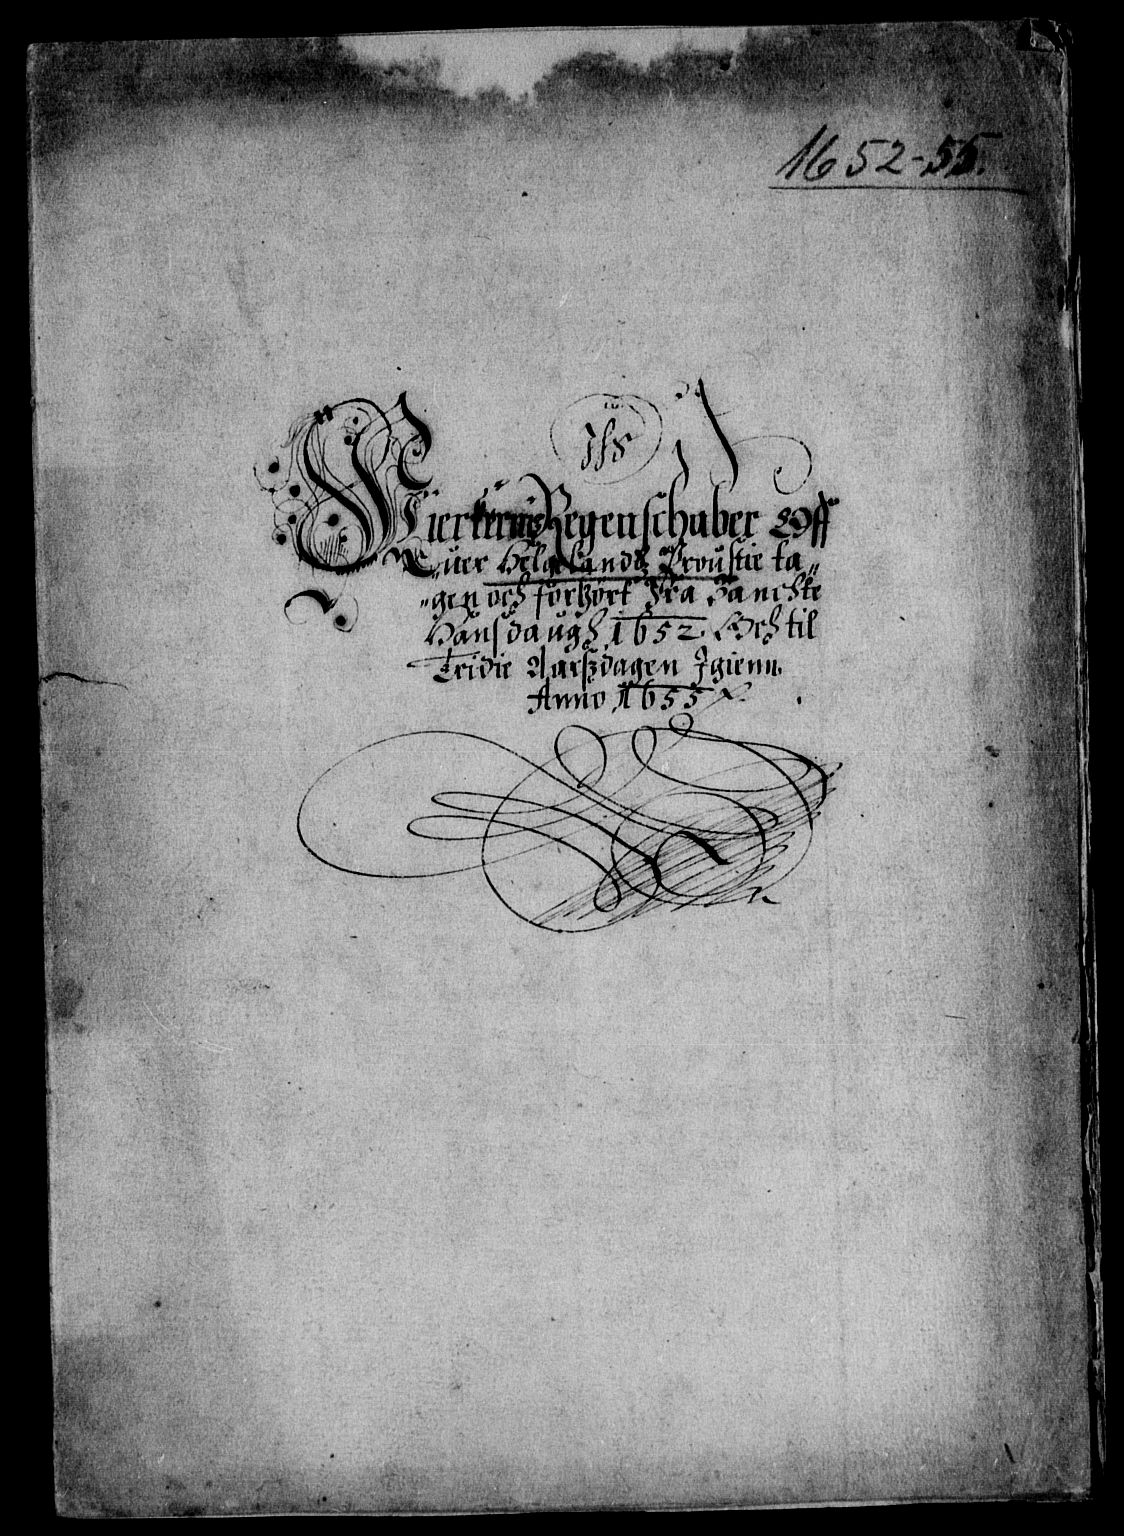 1652-55.
Jhs
Kierkernis Regenschaber Off
"uer Helgelandz Proustie ta"
"gen och forhört Fra Sanckte
Hans daugh 1652. Och til
Tridie Aarszdagen Igienn.
Anno 1655